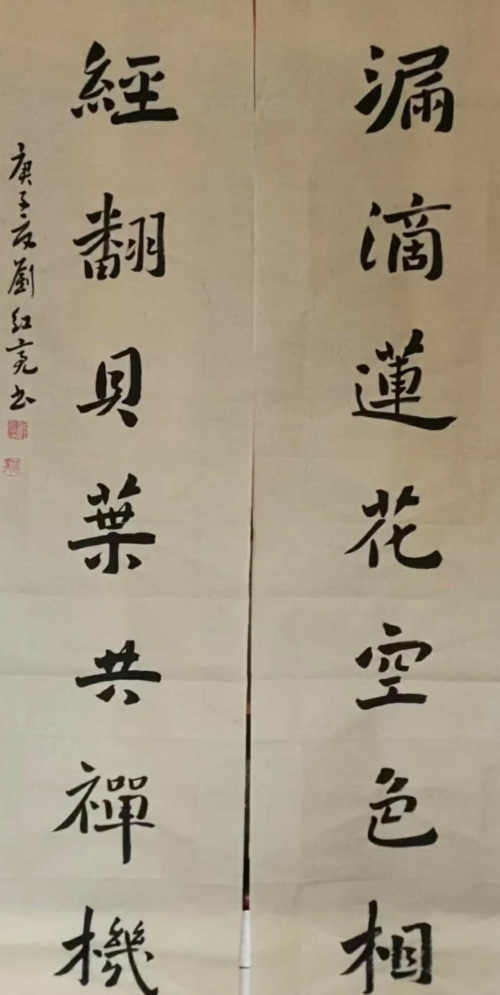 漏滴蓮花空色相
經翻貝葉共禪機
庚子夏劉紅亮书